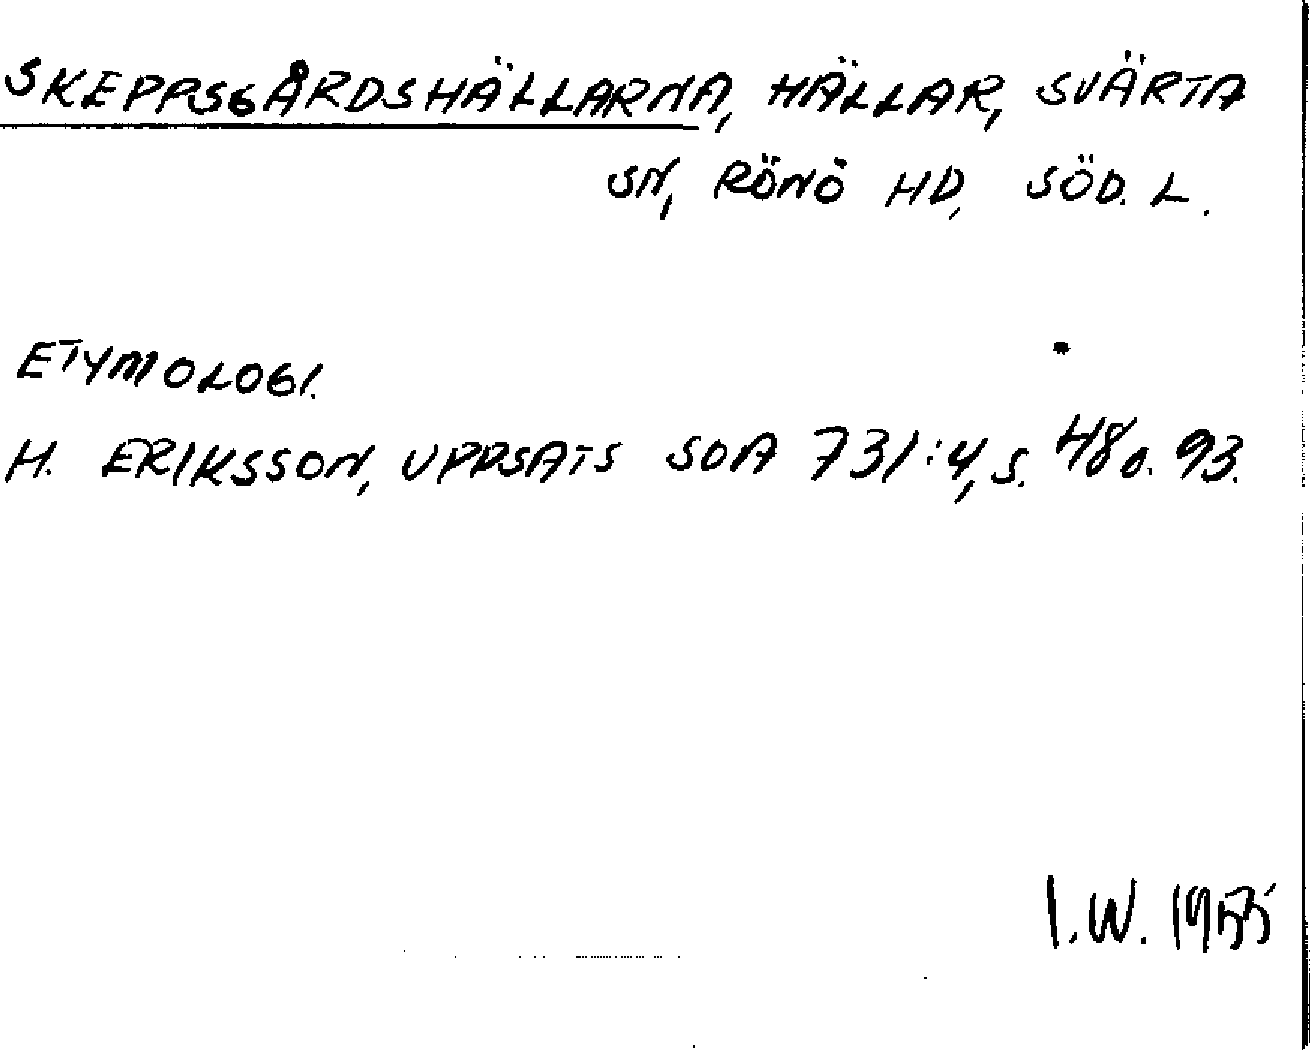 SKEPPSGÅRDSHÄLLARNA, HÄLLAR, SVÄRTA
SN, RÖNÖ HD, SÖD. L.
ETYMOLOGI.
H. ERIKSSON, UPPSATS SOA 731:4, S. 48 o. 93.
I.W. 1955